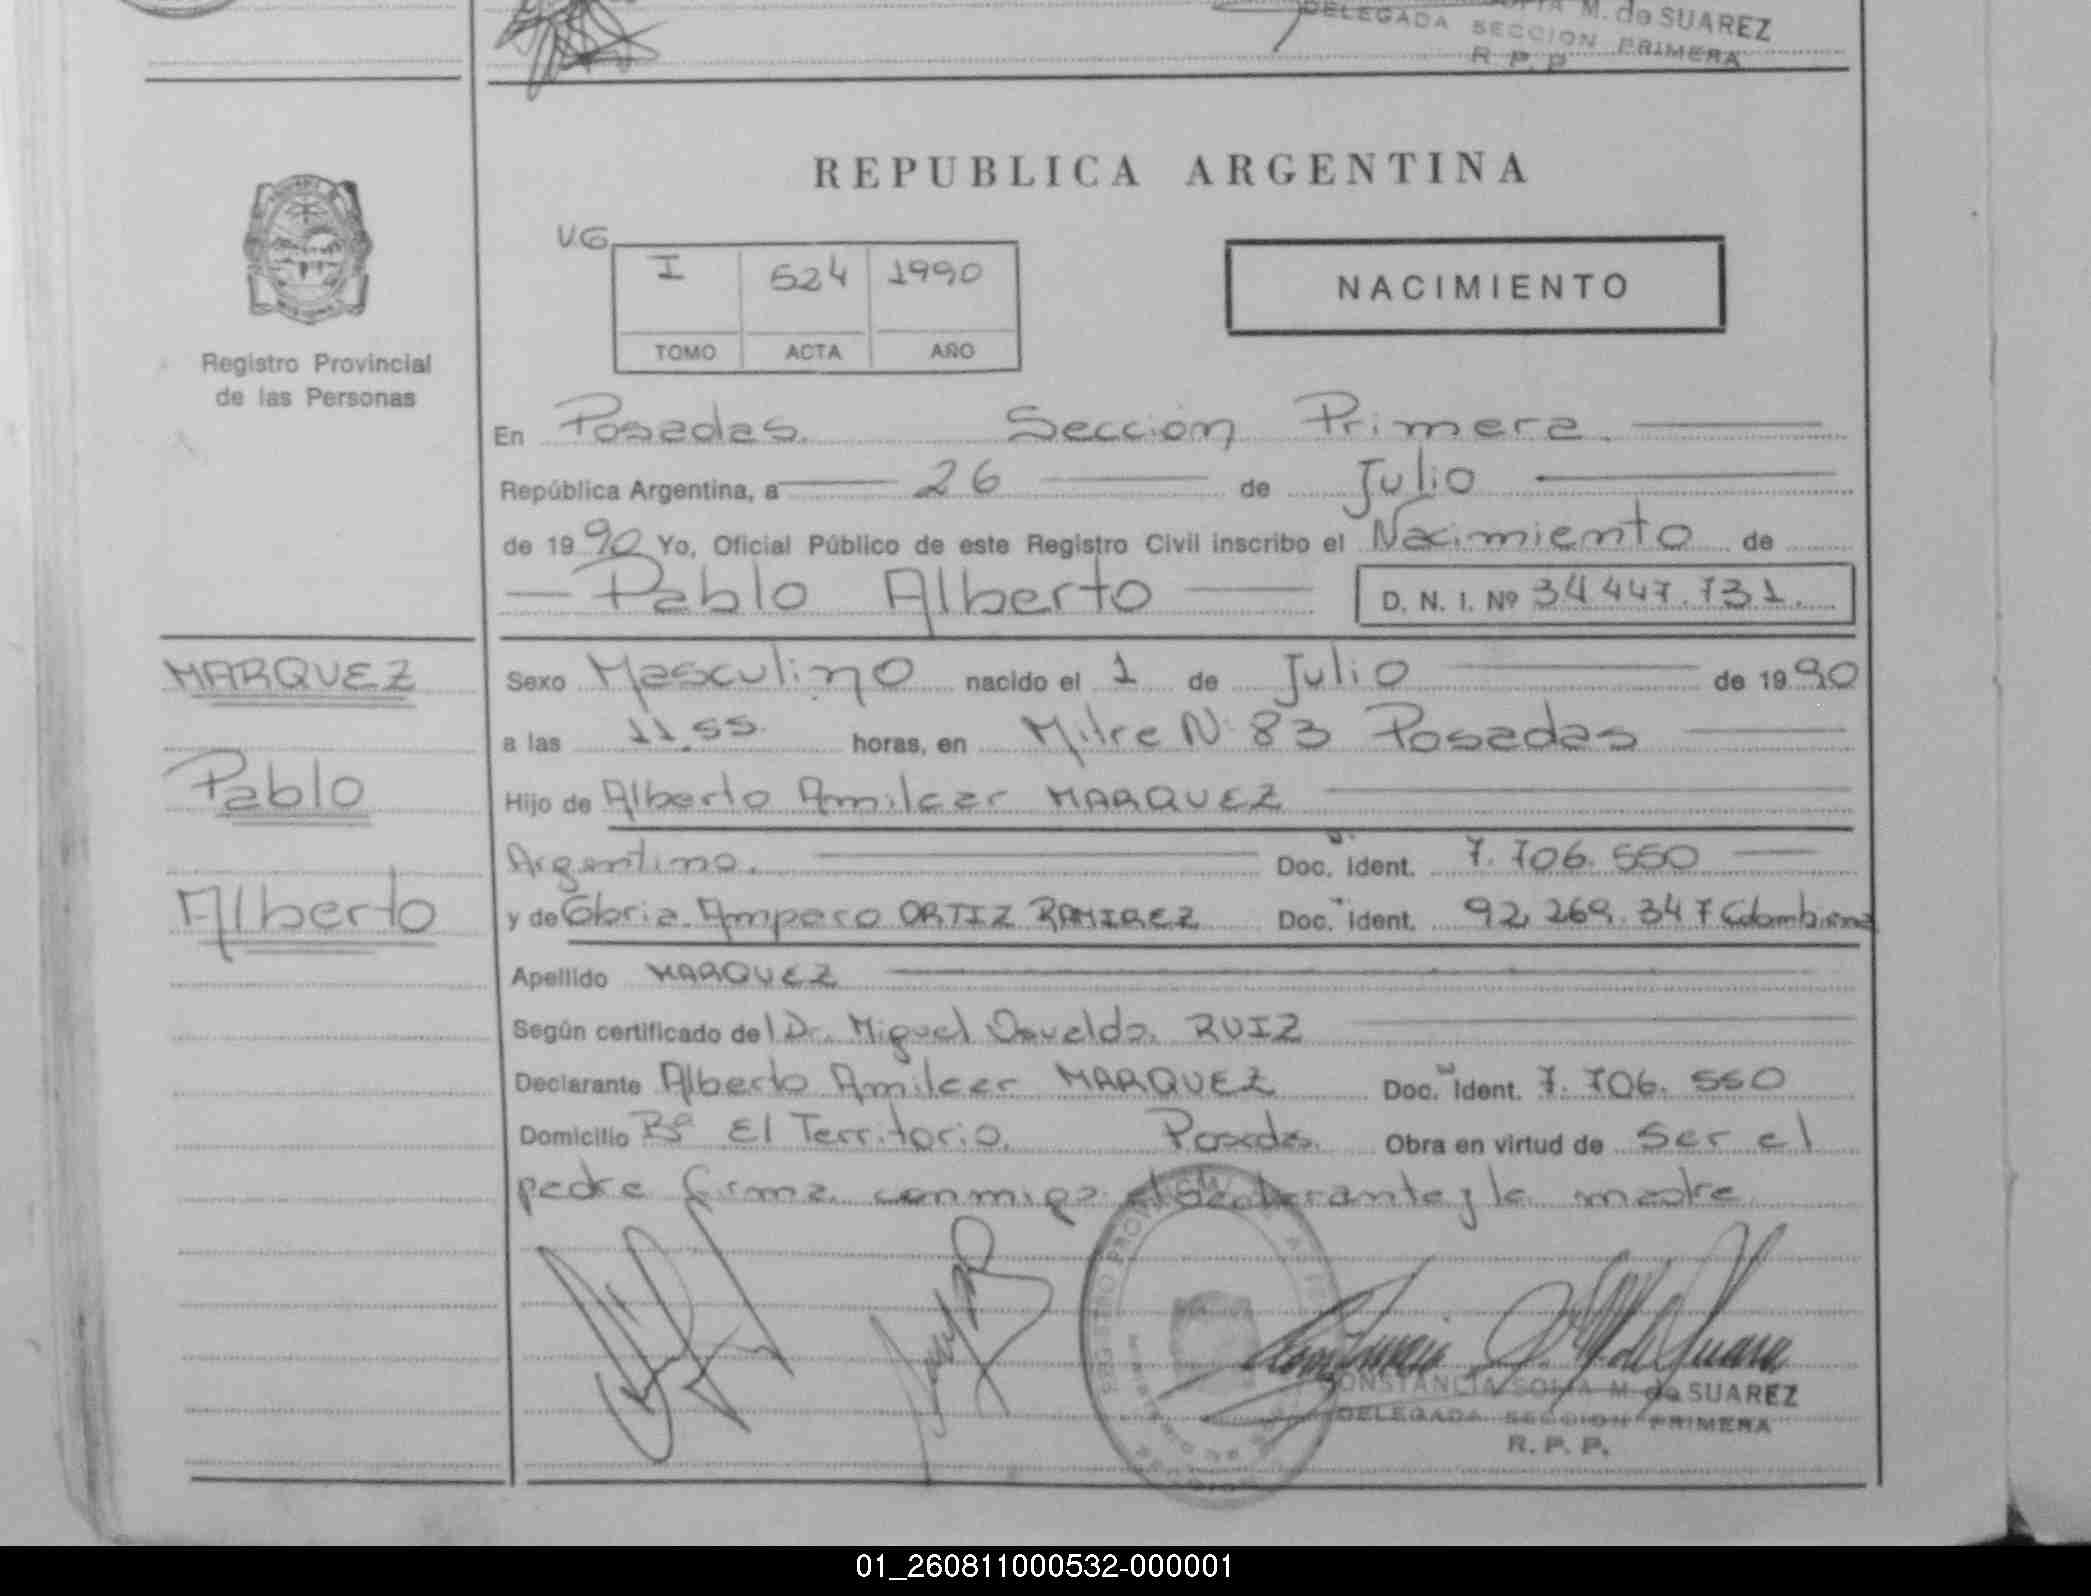 M. de SUAREZ
DELEGADA SECCION PRIMERA
R. P. P.
REPUBLICA ARGENTINA
Registro Provincial
de las Personas
VG
I 524 1990
TOMO ACTA AÑO
NACIMIENTO
En Posadas. Sección Primera.
República Argentina, a 26 de Julio
de 1990 Yo, Oficial Público de este Registro Civil inscribo el Nacimiento de
Pablo Alberto D. N. I. Nº 34 447.731.
MARQUEZ
Pablo
Alberto
Sexo Masculino nacido el 1 de Julio de 1990
a las 11.55 horas, en Mitre Nº 83 Posadas
Hijo de Alberto Amilcar MARQUEZ
Argentino. Doc. Ident. 7.706.550
y de Gloria Amparo ORTIZ RAMIREZ Doc. Ident. 92.269.347 Colombiana
Apellido MARQUEZ
Según certificado del Dr. Miguel Osvaldo RUIZ
Declarante Alberto Amilcar MARQUEZ Doc. Ident. 7.706.550
Domicilio Bº El Territorio. Posadas. Obra en virtud de ser el
padre firma conmigo el declarante y la madre
CONSTANCIA SOFIA M. de SUAREZ
DELEGADA SECCION PRIMERA
R. P. P.
01_260811000532-000001